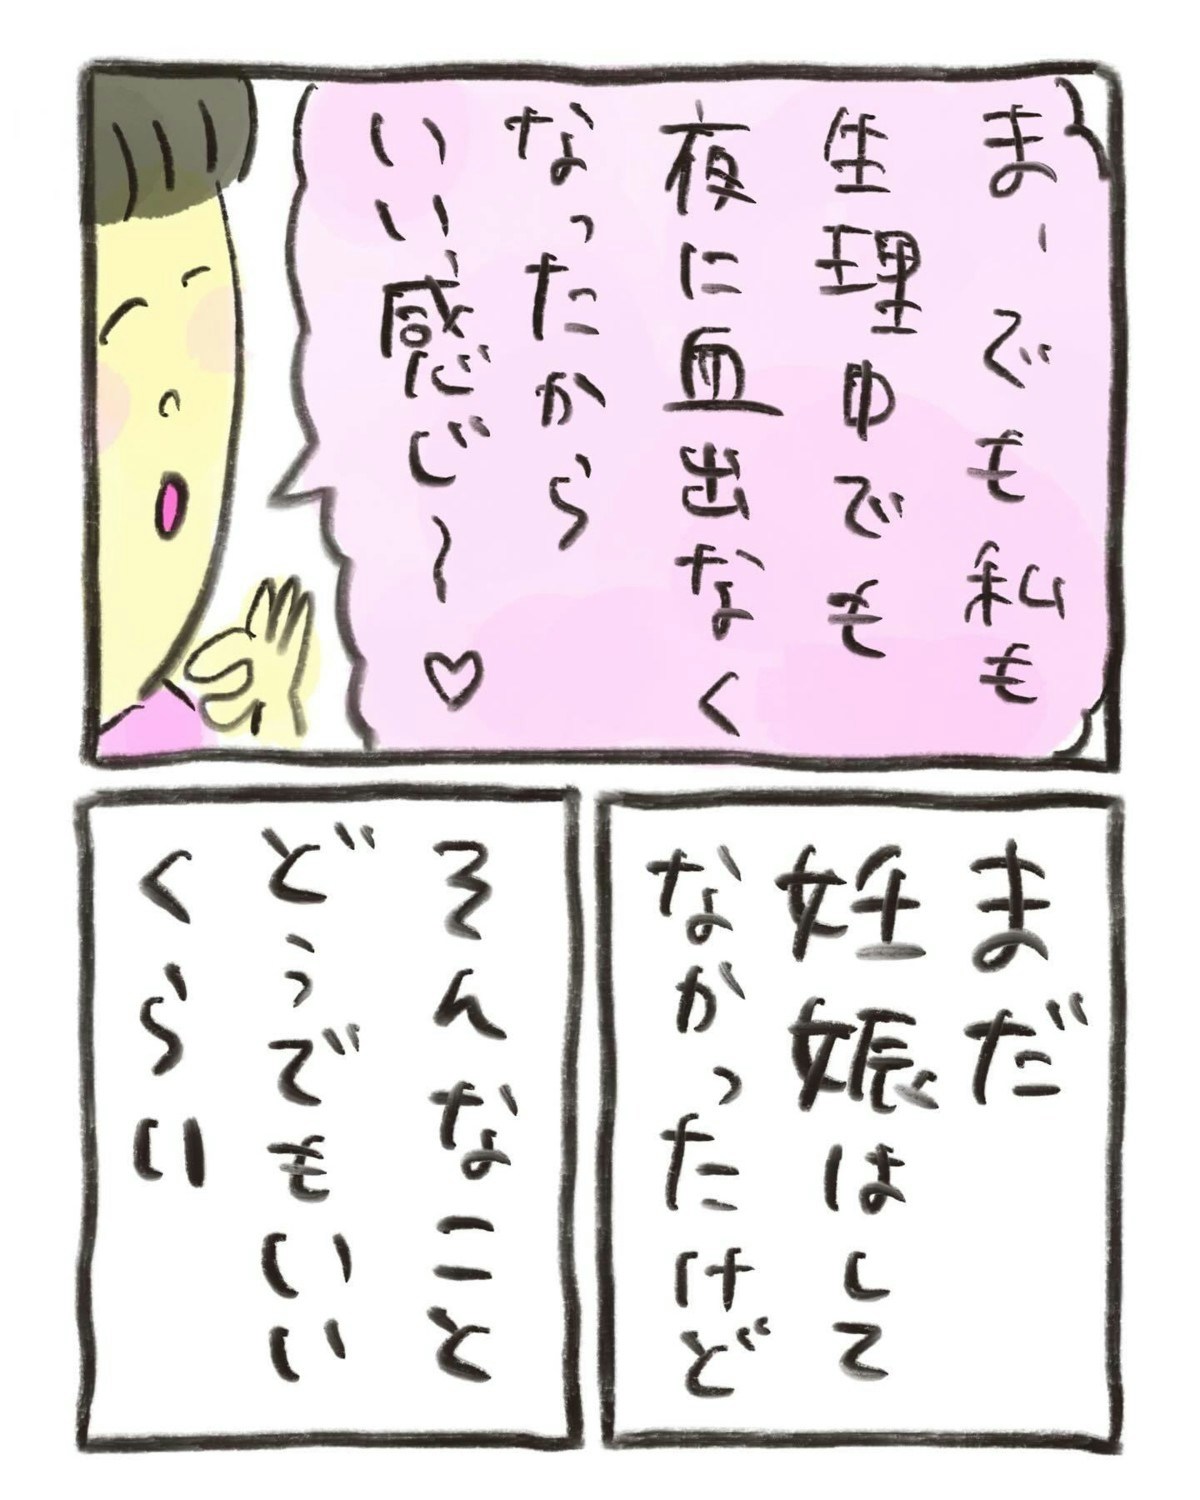 まぁでも私も
生理中でも
夜に血出なく
なったから
いい感じ〜♡
まだ
妊娠はして
なかったけど
そんなこと
どうでもいい
くらい